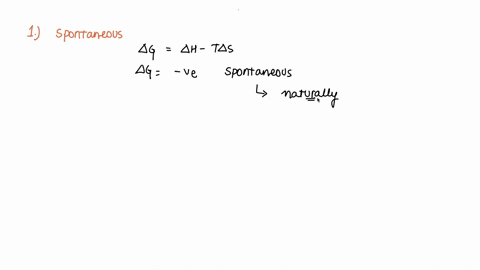 1.) Spontaneous
ΔG = ΔH - TΔS
ΔG = -ve spontaneous
↳ naturally